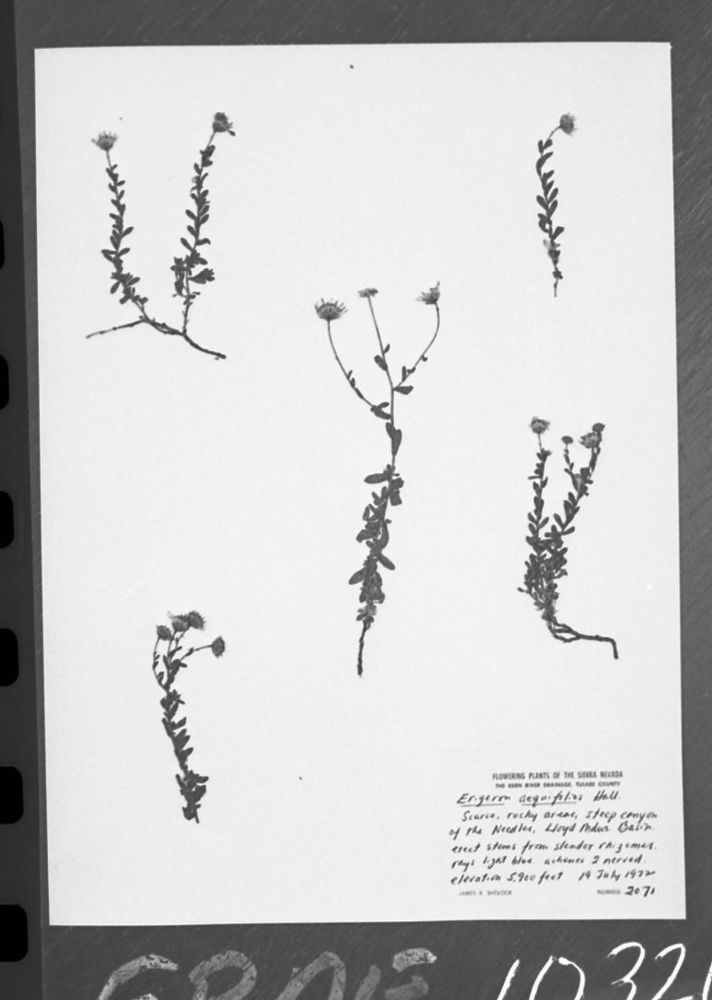 FLOWERING PLANTS OF THE SIERRA NEVADA
THE KERN RIVER DRAINAGE, TULARE COUNTY
Erigeron aequifolius Hall.
Scarce, rocky areas, steep canyon
of the Needles, Lloyd Mdws Basin.
erect stems from slender rhizomes.
rays light blue. achenes 2 nerved.
elevation 5,900 feet 19 July 1972
JAMES R. SHEVOCK NUMBER 2071